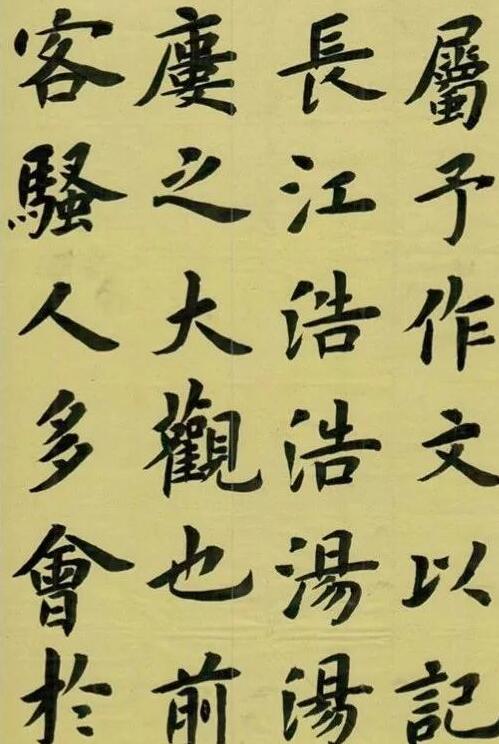 屬予作文以記
長江浩浩湯湯
廔之大觀也前
客騷人多會於